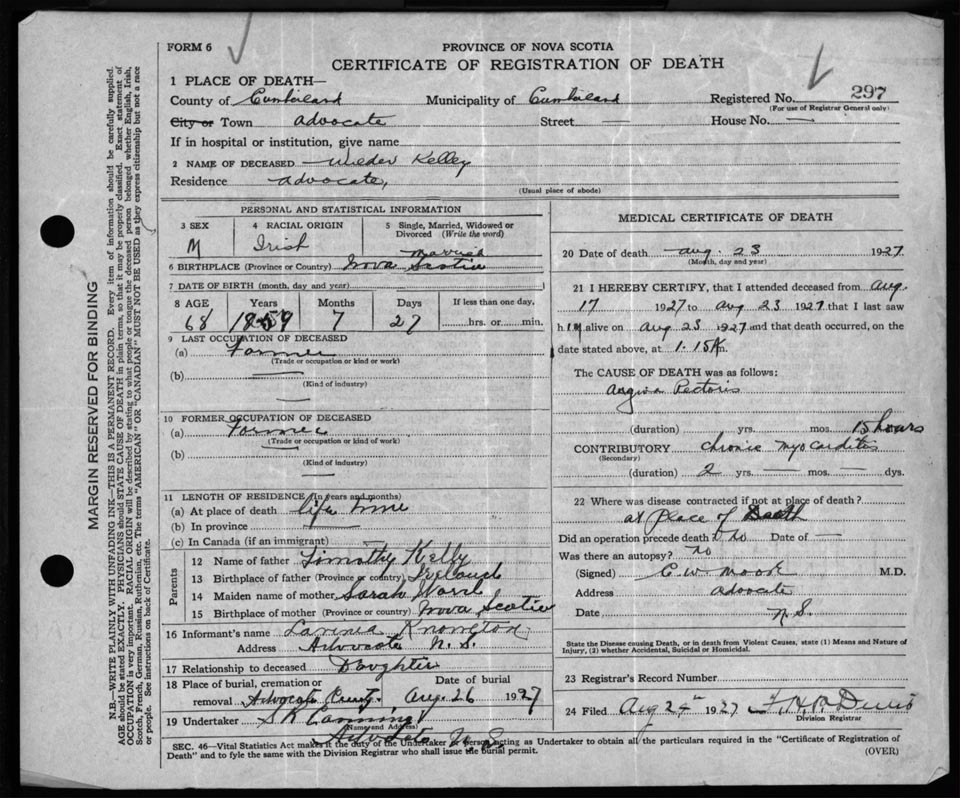 FORM 6
PROVINCE OF NOVA SCOTIA
CERTIFICATE OF REGISTRATION OF DEATH
1 PLACE OF DEATH—
County of Cumberland Municipality of Cumberland Registered No. 297
(For use of Registrar General only)
City or Town Advocate Street — House No. —
If in hospital or institution, give name
2 NAME OF DECEASED Kelley
Residence Advocate,
(Usual place of abode)
PERSONAL AND STATISTICAL INFORMATION
3 SEX M
4 RACIAL ORIGIN Irish
5 Single, Married, Widowed or Divorced (Write the word) Married
6 BIRTHPLACE (Province or Country) Nova Scotia
7 DATE OF BIRTH (month, day and year)
8 AGE Years Months Days If less than one day,
68 1859 7 27 hrs. or min.
9 LAST OCCUPATION OF DECEASED
(a) Farmer
(Trade or occupation or kind or work)
(b) —
(Kind of industry)
—
10 FORMER OCCUPATION OF DECEASED
(a) Farmer
(Trade or occupation or kind of work)
(b) —
(Kind of industry)
—
11 LENGTH OF RESIDENCE (In years and months)
(a) At place of death life time
(b) In province —
(c) In Canada (if an immigrant) —
Parents
12 Name of father Timothy Kelly
13 Birthplace of father (Province or country) Ireland
14 Maiden name of mother Sarah
15 Birthplace of mother (Province or country) Nova Scotia
16 Informant's name Lavinea Knowlton
Address Advocate N. S.
17 Relationship to deceased Daughter
18 Place of burial, cremation or removal Date of burial
Advocate Aug. 26 1927
19 Undertaker S R Canning
(Name and Address)
Advocate N S
MEDICAL CERTIFICATE OF DEATH
20 Date of death Aug. 23 1927
(Month, day and year)
21 I HEREBY CERTIFY, that I attended deceased from Aug.
17 1927 to Aug 23 1927 that I last saw
him alive on Aug 23 1927 and that death occurred, on the
date stated above, at 1.15 m.
The CAUSE OF DEATH was as follows:
Angina Pectoris
(duration) yrs. mos. 15 hours
CONTRIBUTORY Chronic Myocarditis
(Secondary)
(duration) 2 yrs. — mos. — dys.
22 Where was disease contracted if not at place of death?
at Place of Death
Did an operation precede death? No Date of —
Was there an autopsy? No
(Signed) C. W. Moor M.D.
Address Advocate
Date N. S.
State the Disease causing Death, or in death from Violent Causes, state (1) Means and Nature of
Injury, (2) whether Accidental, Suicidal or Homicidal.
23 Registrar's Record Number
24 Filed Aug 24 1927
Division Registrar
SEC. 46—Vital Statistics Act makes it the duty of the Undertaker or person acting as Undertaker to obtain all the particulars required in the "Certificate of Registration of
Death" and to fyle the same with the Division Registrar who shall issue the burial permit.
(OVER)
MARGIN RESERVED FOR BINDING
N.B.—WRITE PLAINLY WITH UNFADING INK—THIS IS A PERMANENT RECORD. Every item of information should be carefully supplied.
AGE should be stated EXACTLY. PHYSICIANS should STATE CAUSE OF DEATH in plain terms, so that it may be properly classified. Exact statement of
OCCUPATION is very important. RACIAL ORIGIN will be described by stating to what people or tongue the deceased person belonged whether English, Irish,
Scotch, French, German, Russian, Ruthenian, etc. The terms "AMERICAN" OR "CANADIAN" MUST NOT BE USED as they express citizenship but not a race
or people. See instructions on back of Certificate.